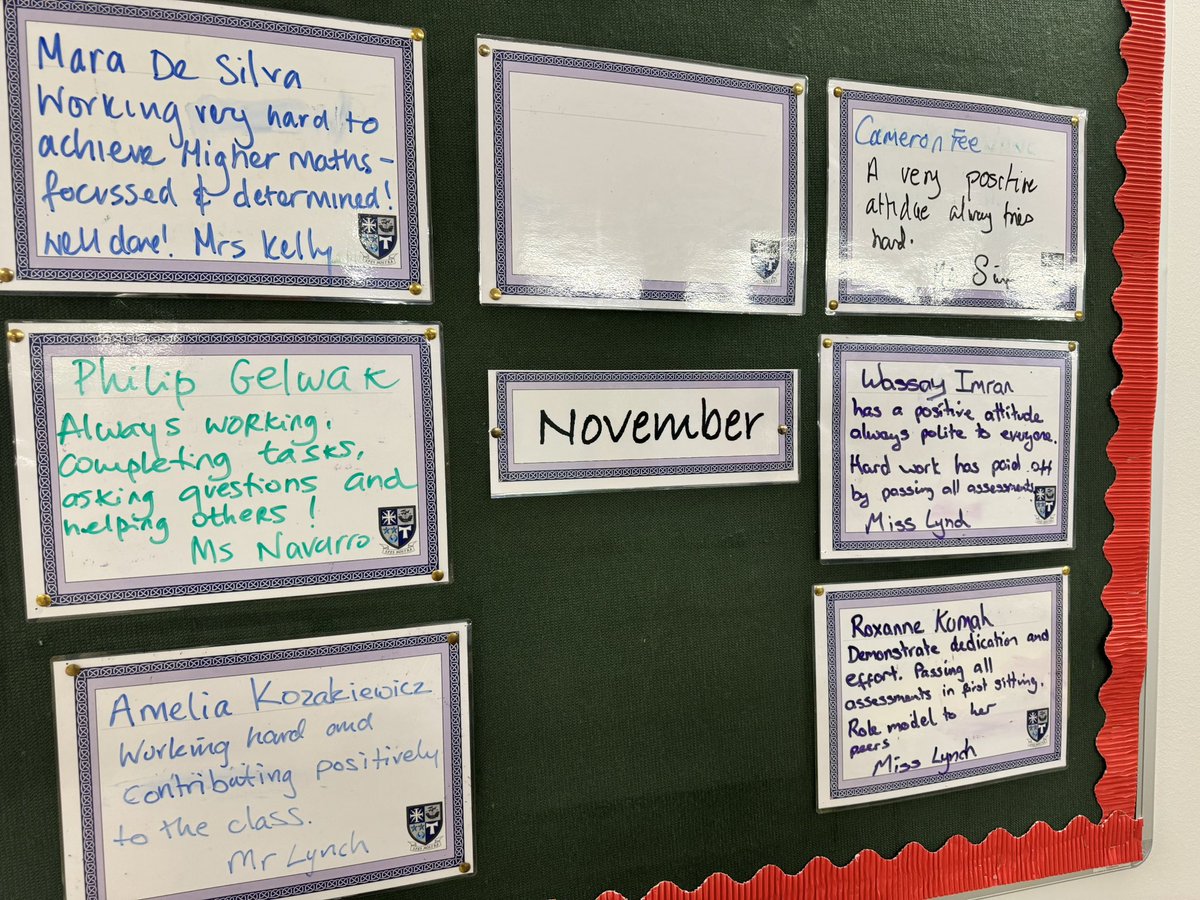 Mara De Silva
Working very hard to
achieve Higher maths -
focussed & determined!
Well done! Mrs Kelly
Philip Gelwak
Always working,
completing tasks,
asking questions and
helping others!
Ms Navarro
Amelia Kozakiewicz
Working hard and
contributing positively
to the class.
Mr Lynch
November
Cameron Fee
A very positive
attidue alway tries
hard.
Wassay Imran
has a positive attitude
always polite to everyone.
Hard work has paid off
by passing all assessments
Miss Lynch
Roxanne Kumah
Demonstrate dedication and
effort. Passing all
assessments in first sitting.
Role model to her
peers
Miss Lynch